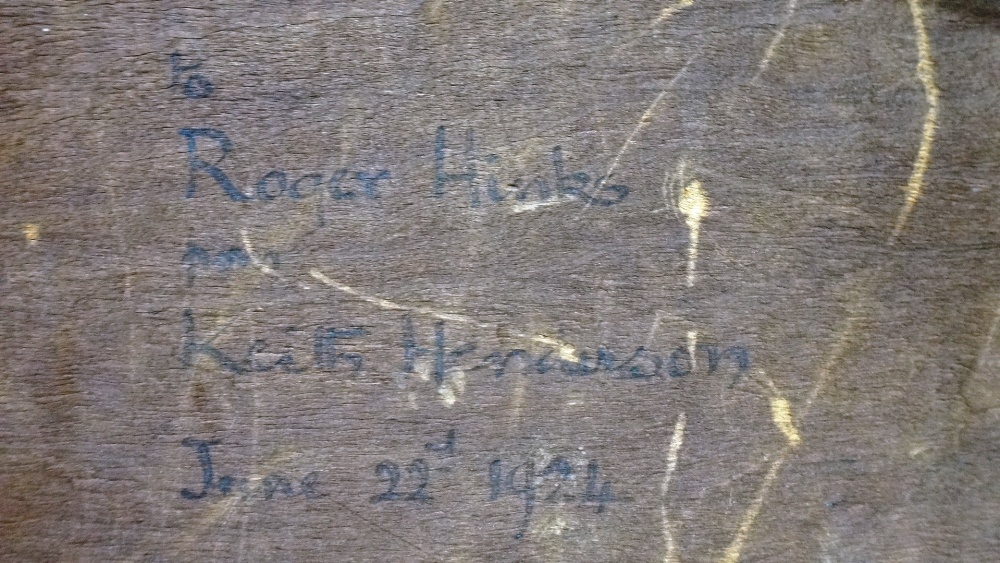 to
Roger Hinks
from
Keith Henderson
June 22d 1924